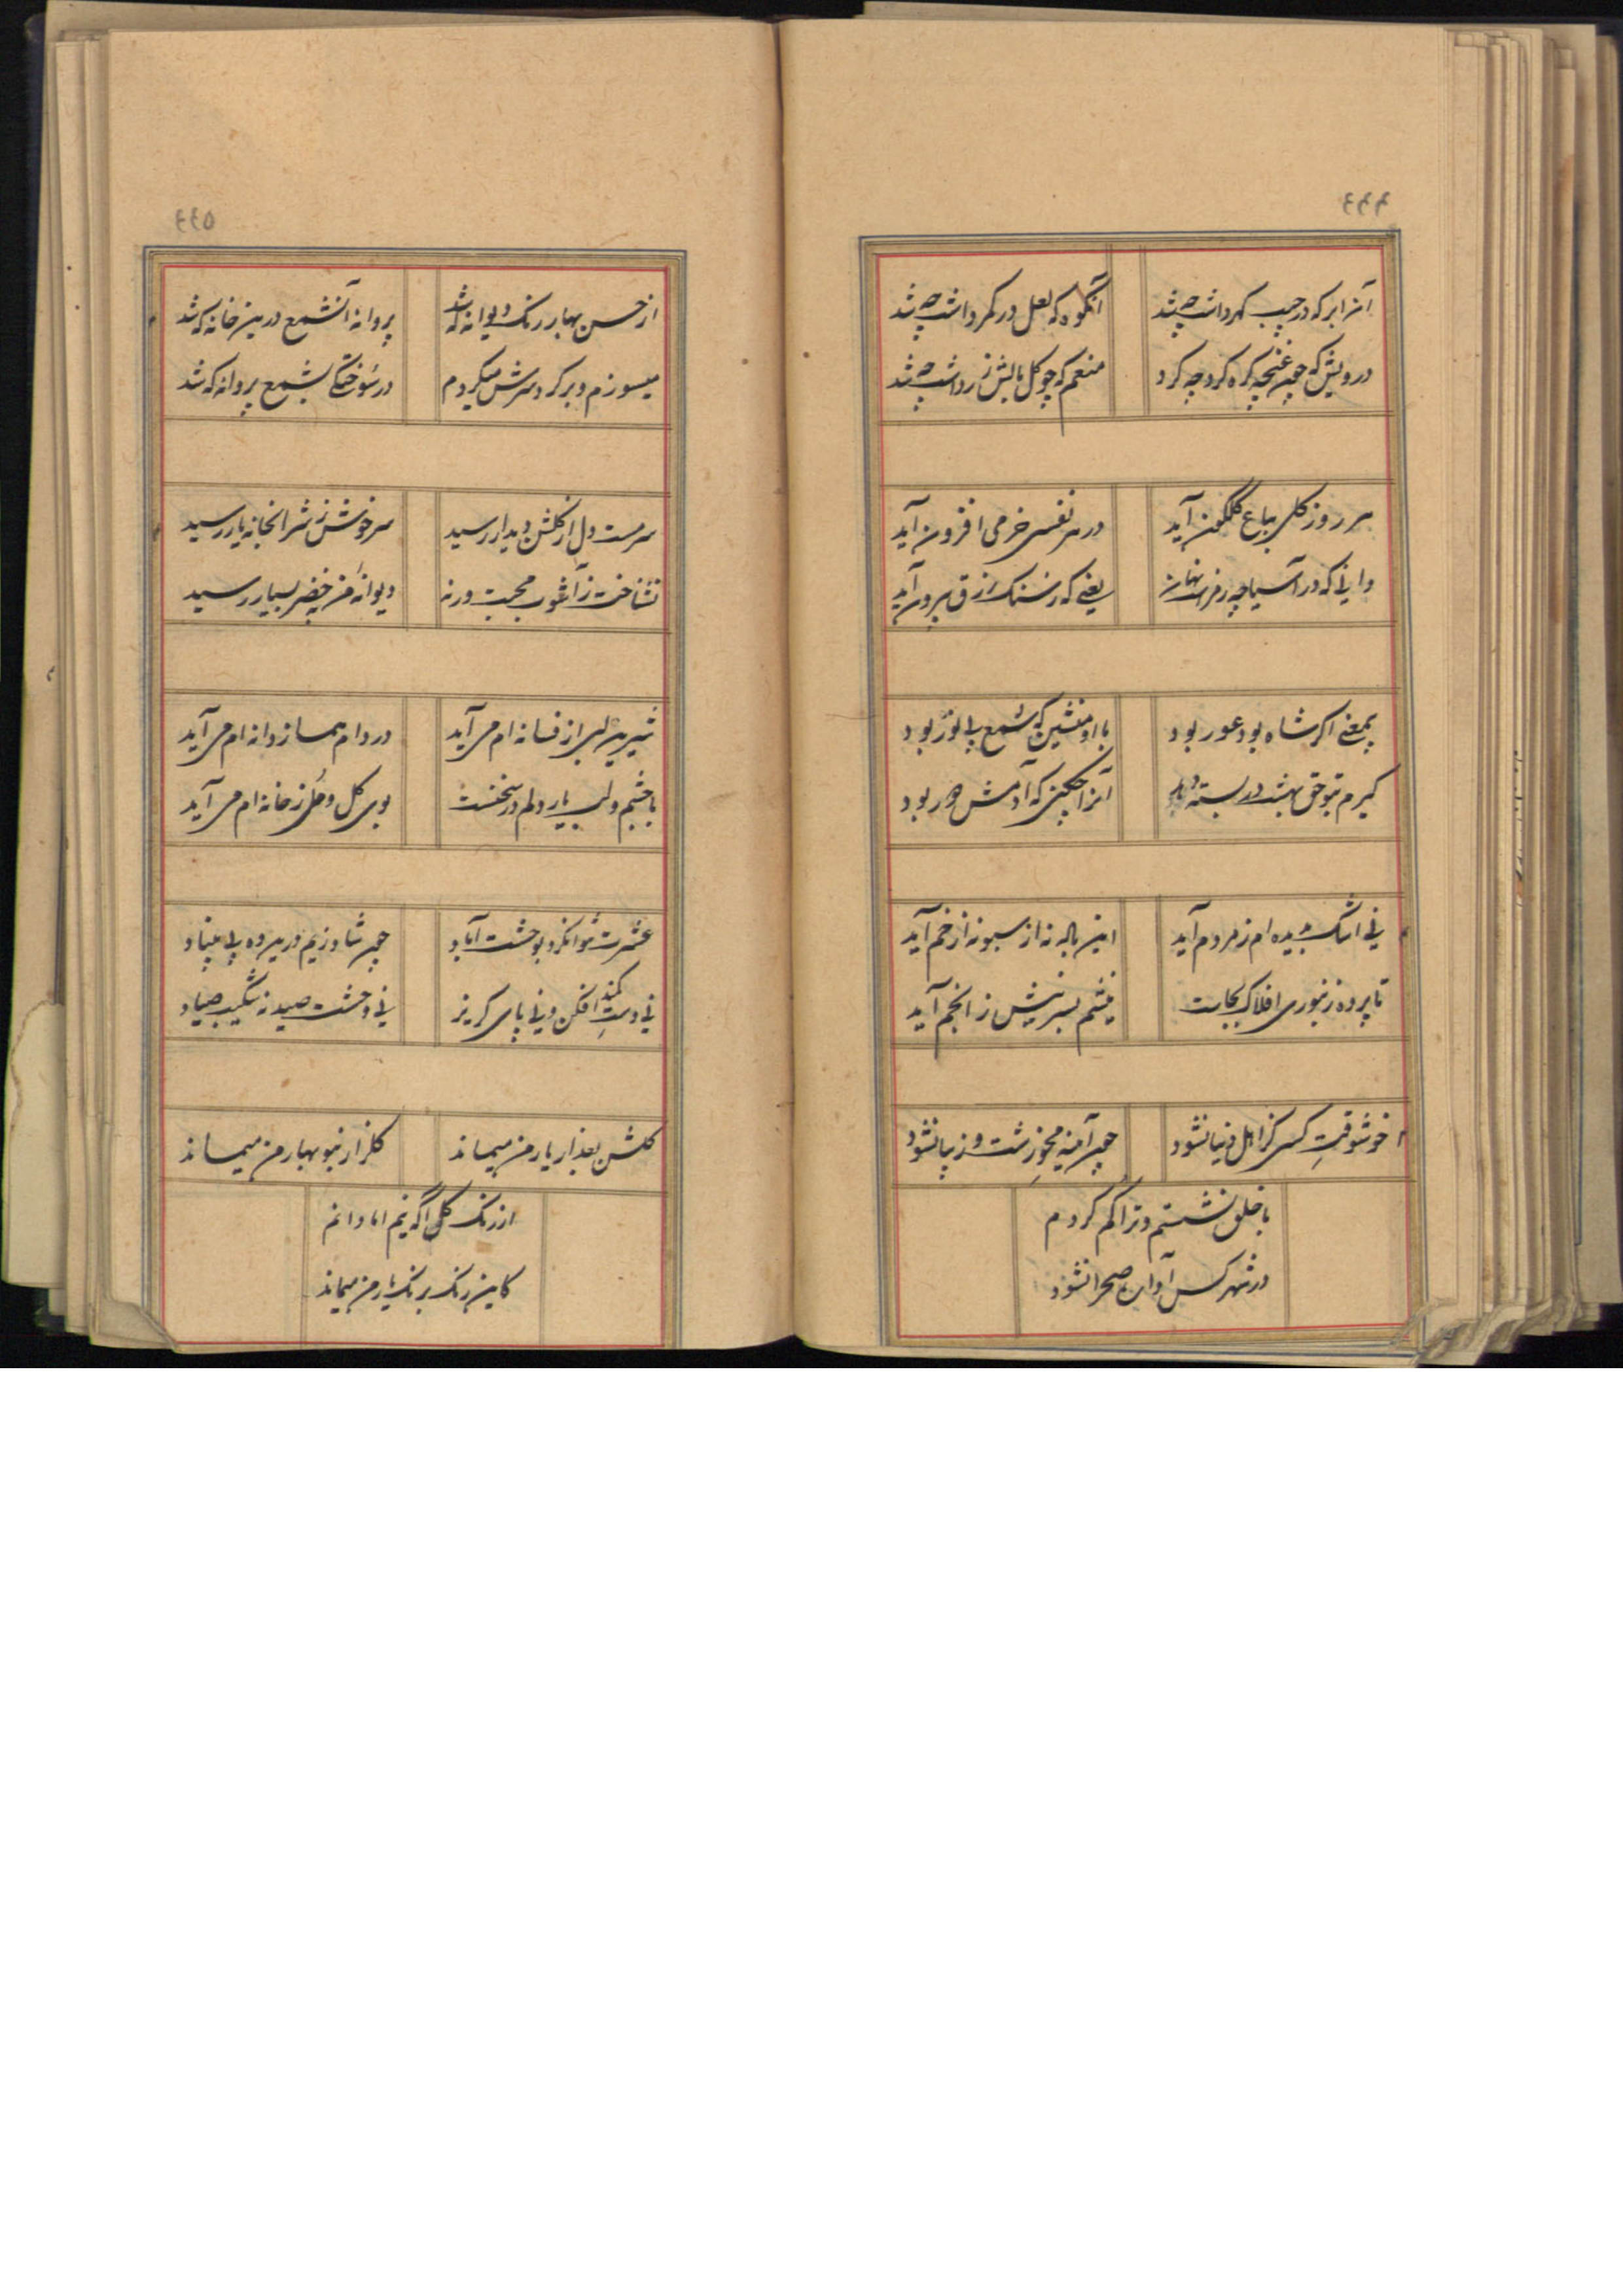 ۶۶۶
آنرا بر که در جیب گهر داشت چه شد
آنکوه که لعل در کمر داشت چه شد
درویش که چون غنچه گره کرد چه کرد
منعم که چو گل بالش زر داشت چه شد
هر روز گلی بباغ گلگون آید
در هر نفسی خرمی افزون آید
دانی که در آسیا چه رمز است نهان
یعنی که ز سنگ رزق بیرون آید
بمعنی اگر شاه بود عور بود
با او منشین که شمع بی نور بود
گیرم بتو حق بهشت در بسته
آنرا چکنی که آدمش حور بود
نی اشک بدیده ام ز مردم آید
این باله نه از سبو نه از خم آید
تا پرده زنبوری افلاک بجاست
نیشم بسر نیش ز انجم آید
خوشوقت کسی کز اهل دنیا نشود
چون آینه محو زشت و زیبا نشود
با خلق نشستم و ترا گم کردم
در شهر کس آواره صحرا نشود
۶۶۵
از حسن بهار رنگ دیوانه که شد
پروانه آنشمع درین خانه که شد
میسوزم و بر گرد سرش میگردم
در سوختگی بشمع پروانه که شد
سرمست دل از گلشن دیدار رسید
سرخوش ز شرابخانه یار رسید
نشناخت ز آشوب محبت ورنه
دیوانه من خضر بسیار رسید
شیرین لبی از فسانه ام می آید
در دام هما ز دانه ام می آید
با چشم و لب یار دلم در سخنست
بوی گل و مل ز خانه ام می آید
عشرت نتوانکرد بوحشت آباد
چون شاد زیم درین ده بی بنیاد
نی دست کمند افکن و نی پای گریز
نی وحشت صید نه شکیب صیاد
گلشن بعذار یار من میماند
گلزار بنوبهار من میماند
از رنگ گل آگه نیم اما دانم
کاین رنگ برنگ یار من میماند